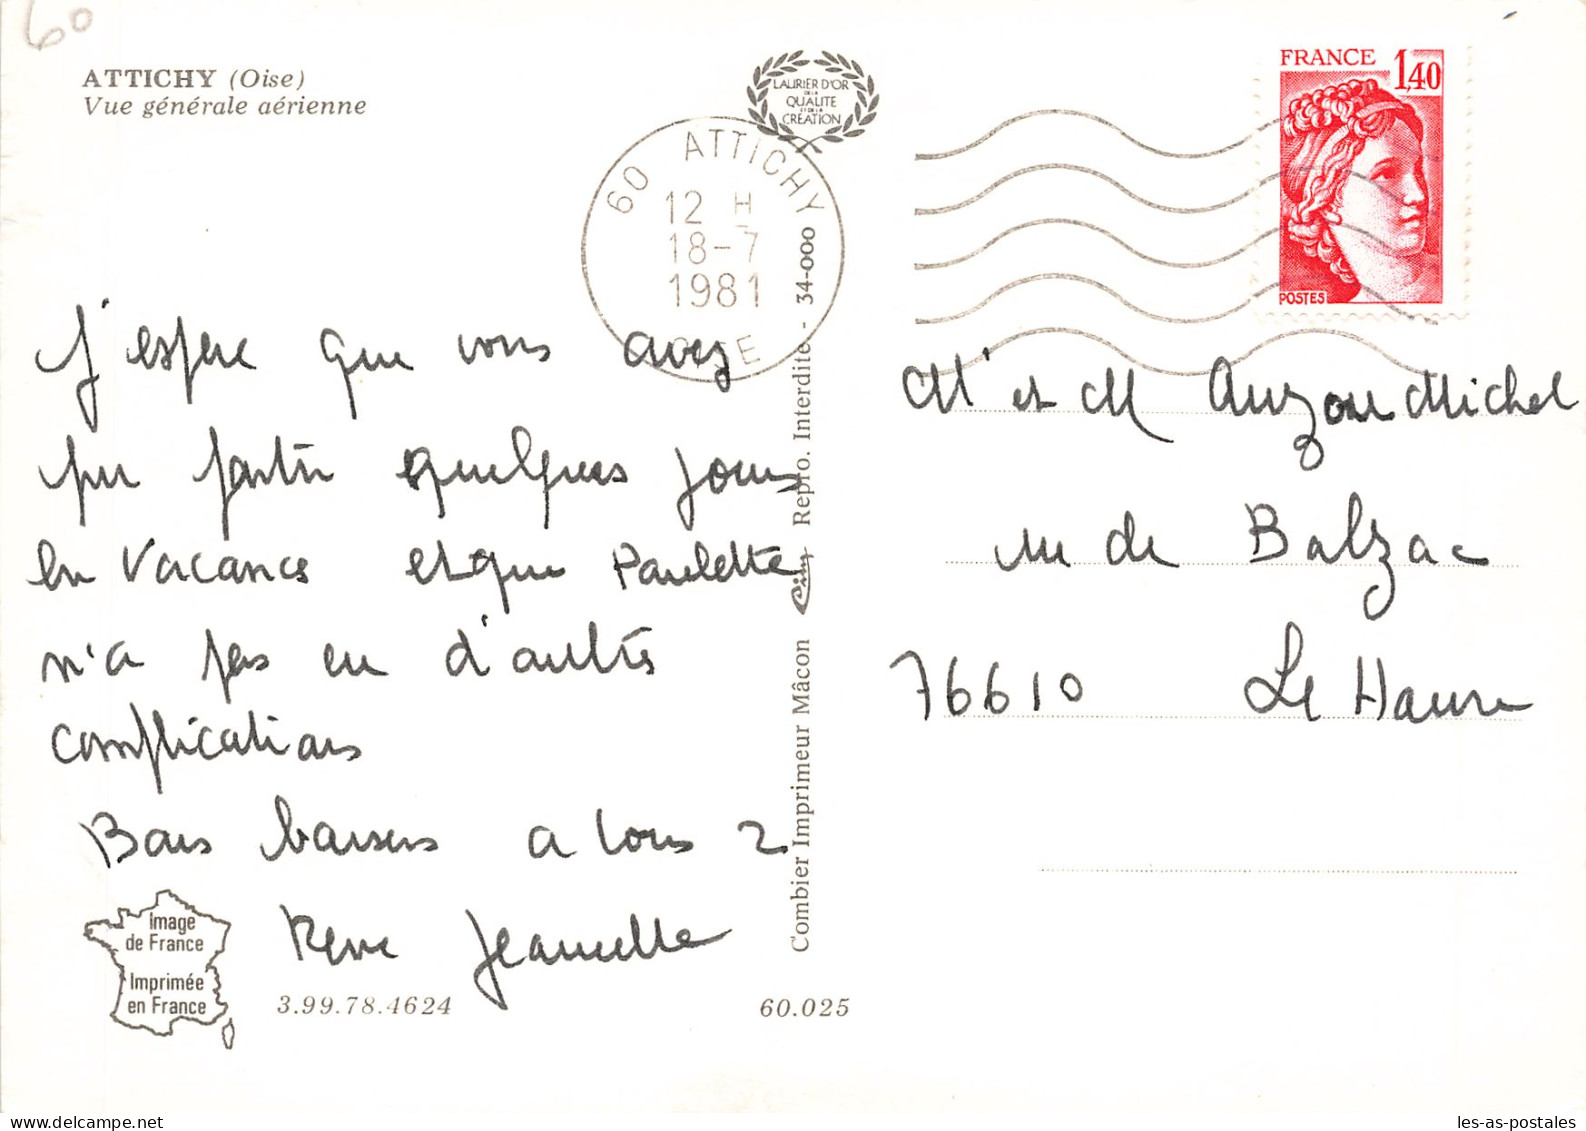 60
ATTICHY (Oise)
Vue générale aérienne
LAURIER D'OR
DE LA
QUALITE
ET DE LA
CREATION
60 ATTICHY
12 H
18-7
1981
OISE
FRANCE 1,40
POSTES
J'espère que vous avez
pu partir quelques jours
en vacances et que Paulette
n'a pas eu d'autres
complications
Bons baisers a tous 2
René Jeannette
M' et M Auzou Michel
rue de Balzac
76610 Le Havre
Combier Imprimeur Mâcon Repro. Interdite - 34-000
Image
de France
Imprimée
en France
3.99.78.4624
60.025
les-as-postales